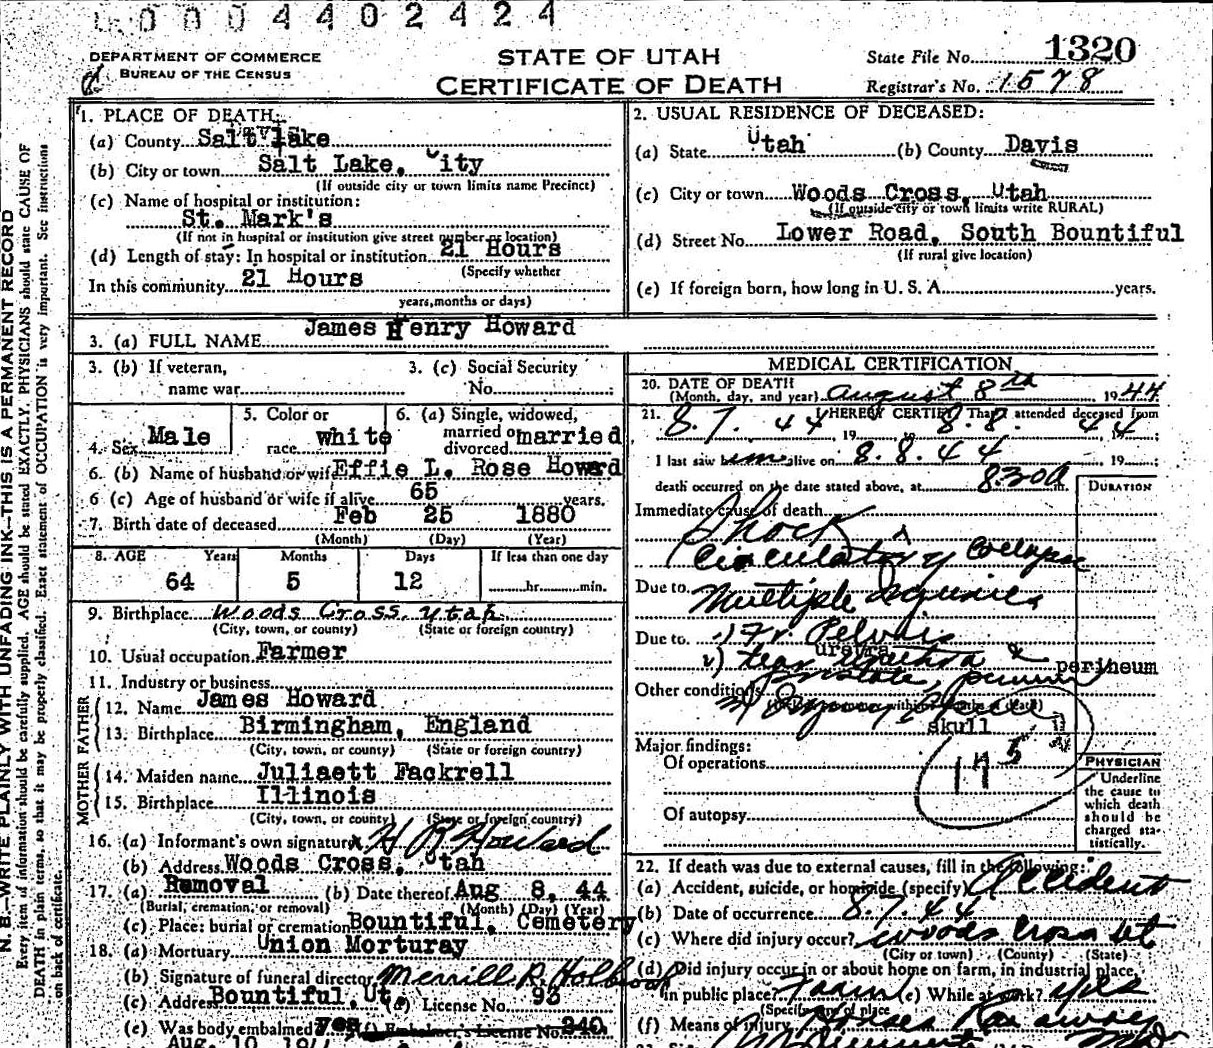 0004402424
DEPARTMENT OF COMMERCE
BUREAU OF THE CENSUS
STATE OF UTAH
CERTIFICATE OF DEATH
State File No. 1320
Registrar's No. 1578
N. B.—WRITE PLAINLY WITH UNFADING INK—THIS IS A PERMANENT RECORD
Every item of information should be carefully supplied. AGE should be stated EXACTLY. PHYSICIANS should state CAUSE OF
DEATH in plain terms, so that it may be properly classified. Exact statement of OCCUPATION is very important. See instructions
on back of certificate.
1. PLACE OF DEATH:
(a) County Salt Lake
(b) City or town Salt Lake, City
(If outside city or town limits name Precinct)
(c) Name of hospital or institution:
St. Mark's
(If not in hospital or institution give street number or location)
(d) Length of stay: In hospital or institution 21 Hours
(Specify whether
In this community 21 Hours
years, months or days)
2. USUAL RESIDENCE OF DECEASED:
(a) State Utah (b) County Davis
(c) City or town Woods Cross, Utah
(If outside city or town limits write RURAL)
(d) Street No. Lower Road, South Bountiful
(If rural give location)
(e) If foreign born, how long in U. S. A. years.
3. (a) FULL NAME James Henry Howard
3. (b) If veteran, 3. (c) Social Security
name war No.
4. Sex Male 5. Color or race white 6. (a) Single, widowed, married or divorced married
6. (b) Name of husband or wife Effie L. Rose Howard
6 (c) Age of husband or wife if alive 65 years.
7. Birth date of deceased Feb 25 1880
(Month) (Day) (Year)
8. AGE Years Months Days If less than one day
64 5 12 hr. min.
9. Birthplace Woods Cross, Utah
(City, town, or county) (State or foreign country)
10. Usual occupation Farmer
11. Industry or business
FATHER
12. Name James Howard
13. Birthplace Birmingham, England
(City, town, or county) (State or foreign country)
MOTHER
14. Maiden name Juliaett Fackrell
15. Birthplace Illinois
(City, town, or county) (State or foreign country)
16. (a) Informant's own signature x H R Howard
(b) Address Woods Cross, Utah
17. (a) Removal (b) Date thereof Aug 8, 44
(Burial, cremation, or removal) (Month) (Day) (Year)
(c) Place: burial or cremation Bountiful, Cemetery
18. (a) Mortuary Union Morturay
(b) Signature of funeral director Merrill R. Holbrook
(c) Address Bountiful, Ut. (d) License No. 93
(e) Was body embalmed? yes (f) Embalmer's License No. 240
Aug. 10
MEDICAL CERTIFICATION
20. DATE OF DEATH
(Month, day, and year) August 8th 1944
21. I HEREBY CERTIFY That I attended deceased from
8.7. 44 19 to 8.8. 44
I last saw him alive on 8.8.44 19
death occurred on the date stated above, at 8:30 a m.
DURATION
Immediate cause of death Shock
Circulatory Collapse
Due to Multiple Injuries
Due to 1) Fr. Pelvis
uretra
2) tear urethra &
prostate, perineum periheum
Other conditions
skull
175
Major findings:
Of operations
Of autopsy
PHYSICIAN
Underline
the cause to
which death
should be
charged sta-
tistically.
22. If death was due to external causes, fill in the following:
(a) Accident, suicide, or homicide (specify) Accident
(b) Date of occurrence 8.7.44
(c) Where did injury occur? Woods Cross Ut
(City or town) (County) (State)
(d) Did injury occur in or about home on farm, in industrial place,
in public place? Farm (e) While at work? yes
(Specify type of place
(f) Means of injury Horses Ran away